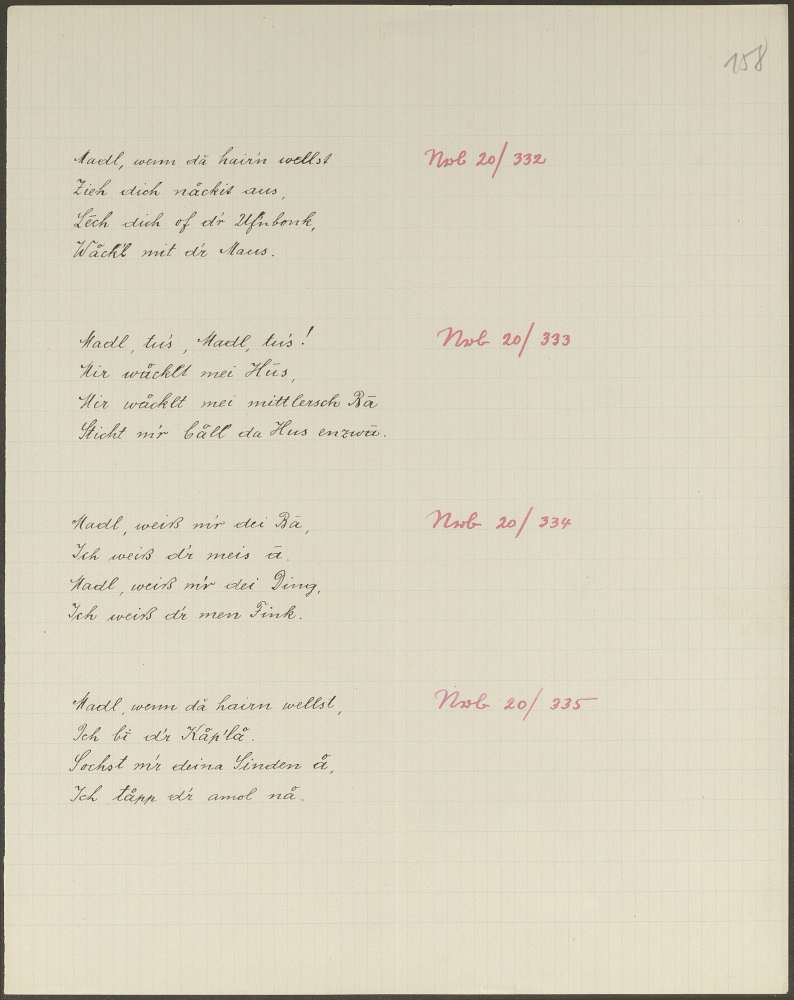 158
Madl, wenn då hair'n wellst
Zieh dich nåckit aus,
Lēch dich of d'r Uf'nbonk,
Wåck'l mit d'r Maus.
Nwb 20/332
Madl, tu's, Madl, tu's!
Mir wåcklt mei Hūs,
Mir wåcklt mei mittlersch Bā
Sticht m'r båll da Hus enzwā.
Nwb 20/333
Madl, weiß m'r dei Bā,
Ich weiß d'r meis ā.
Madl, weiß m'r dei Ding,
Ich weiß d'r men Fink.
Nwb 20/334
Madl, wenn då hairn wellst,
Ich bī d'r Kåp'lå.
Sochst m'r deina Sinden å,
Ich tåpp d'r amol nå.
Nwb 20/335